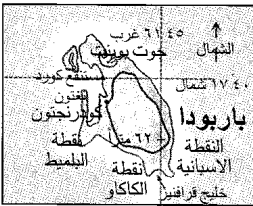 ٦١ ٤٥ غرب
الشمال
جوت بوينت
مستنقع كورد
١٧ ٤٠ شمال
كودرنجتون
باربودا
٦٢ مترا
النقطة
الاسبانية
نقطة
البلميط
نقطة
الكاكاو
خليج قرافنير